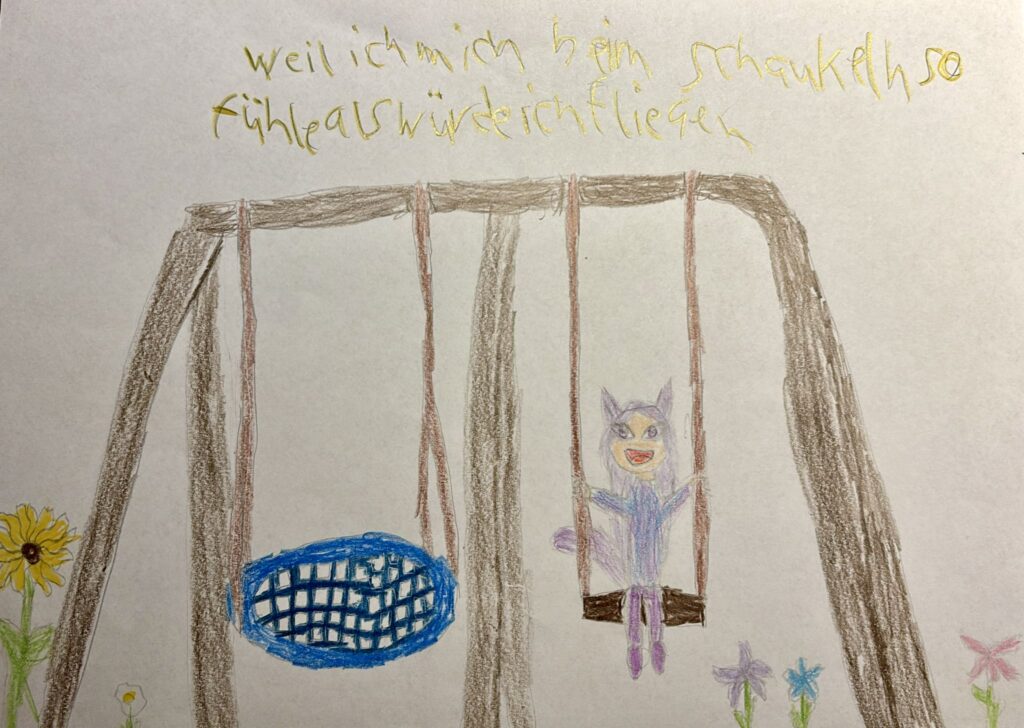 weil ich mich beim schaukeln so
fühle als würde ich fliegen